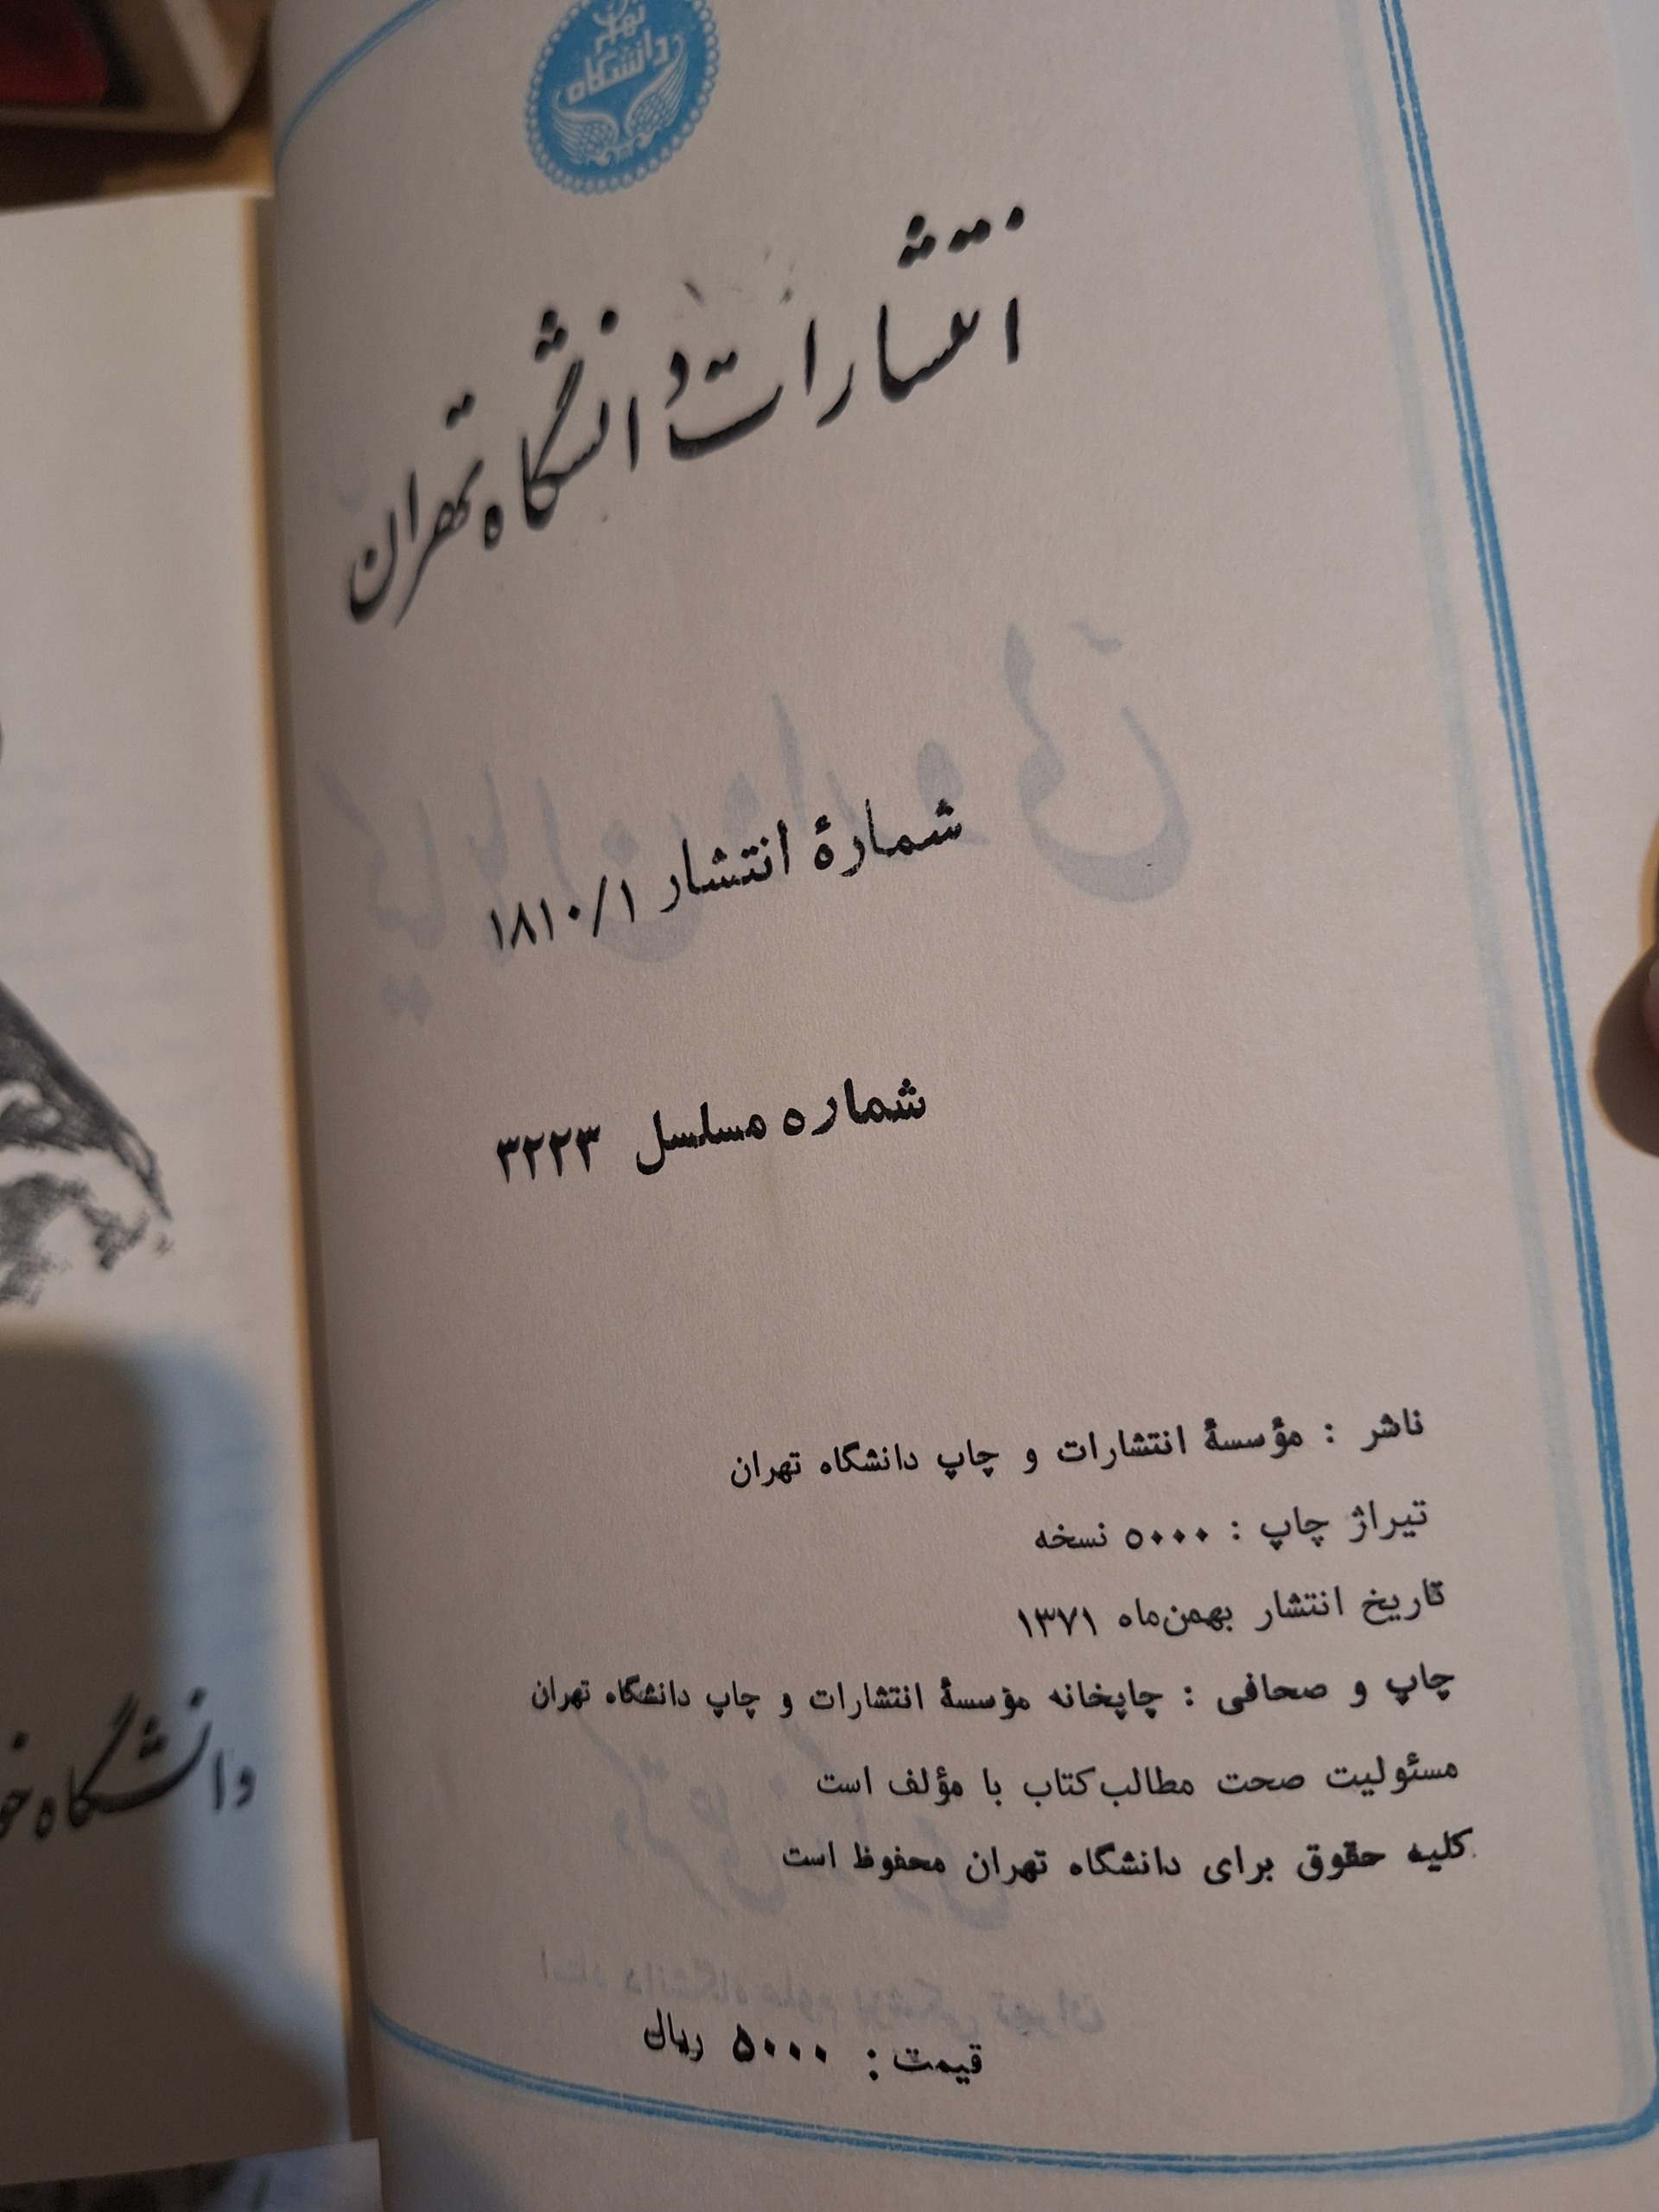 دانشگاه تهران
انتشارات دانشگاه تهران
شمارهٔ انتشار ۱۸۱۰/۱
شماره مسلسل ۳۲۲۳
ناشر : مؤسسهٔ انتشارات و چاپ دانشگاه تهران
تیراژ چاپ : ۵۰۰۰ نسخه
تاریخ انتشار بهمن‌ماه ۱۳۷۱
چاپ و صحافی : چاپخانه مؤسسهٔ انتشارات و چاپ دانشگاه تهران
مسئولیت صحت مطالب کتاب با مؤلف است
کلیه حقوق برای دانشگاه تهران محفوظ است
قیمت : ۵۰۰۰ ریال
دانشگاه